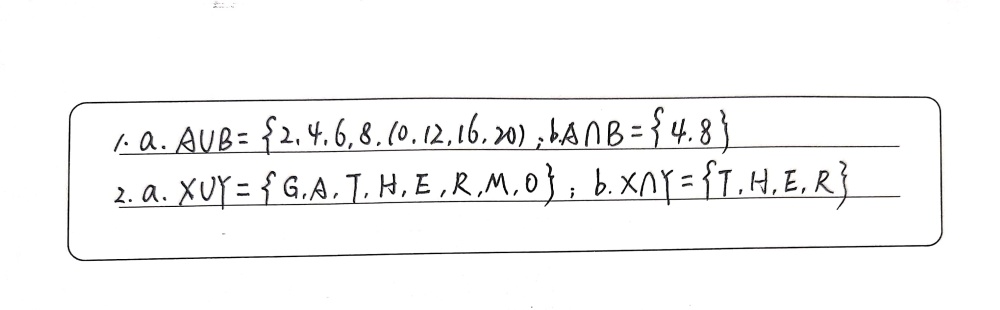 1. a. A∪B = {2,4,6,8.10.12,16.20) ; b.A∩B = {4.8}
2. a. X∪Y = {G,A,T,H,E,R,M,O} ; b. X∩Y = {T,H,E,R}